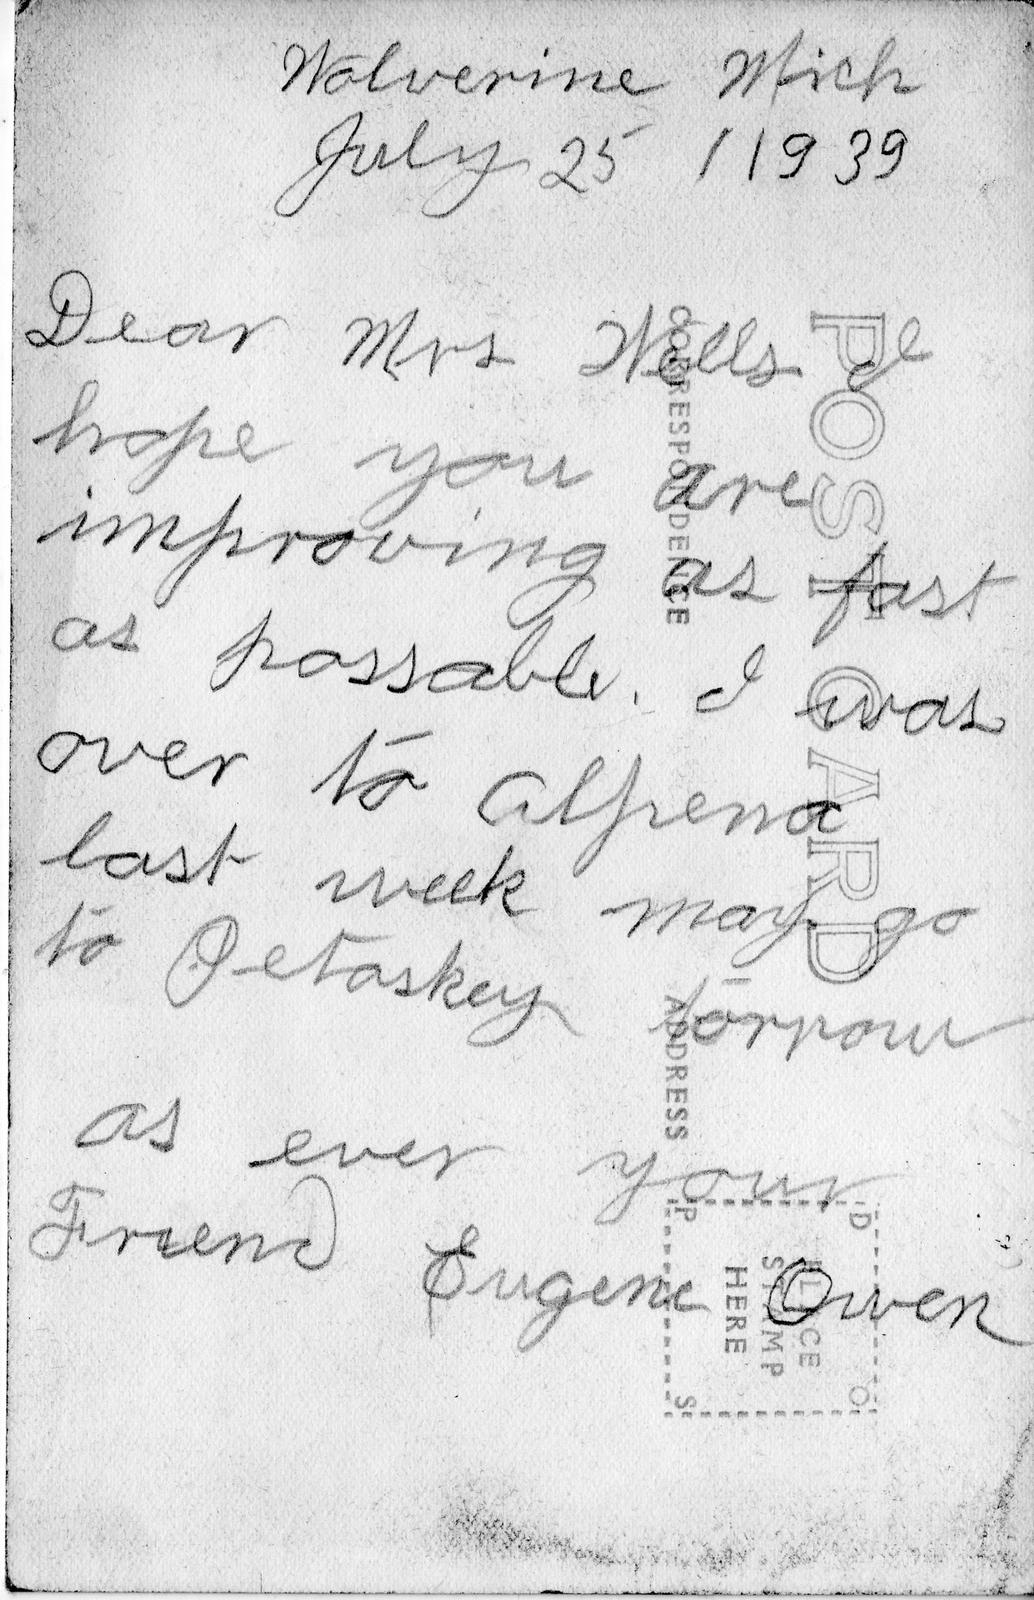 Wolverine Mich
July 25 / 1939
Dear Mrs Wells I
hope you are
improving as fast
as possable. I was
over to Alpena
last week may go
to Petoskey torrow
as ever your
Friend Eugene Owen
POST CARD
CORRESPONDENCE
ADDRESS
PLACE
STAMP
HERE